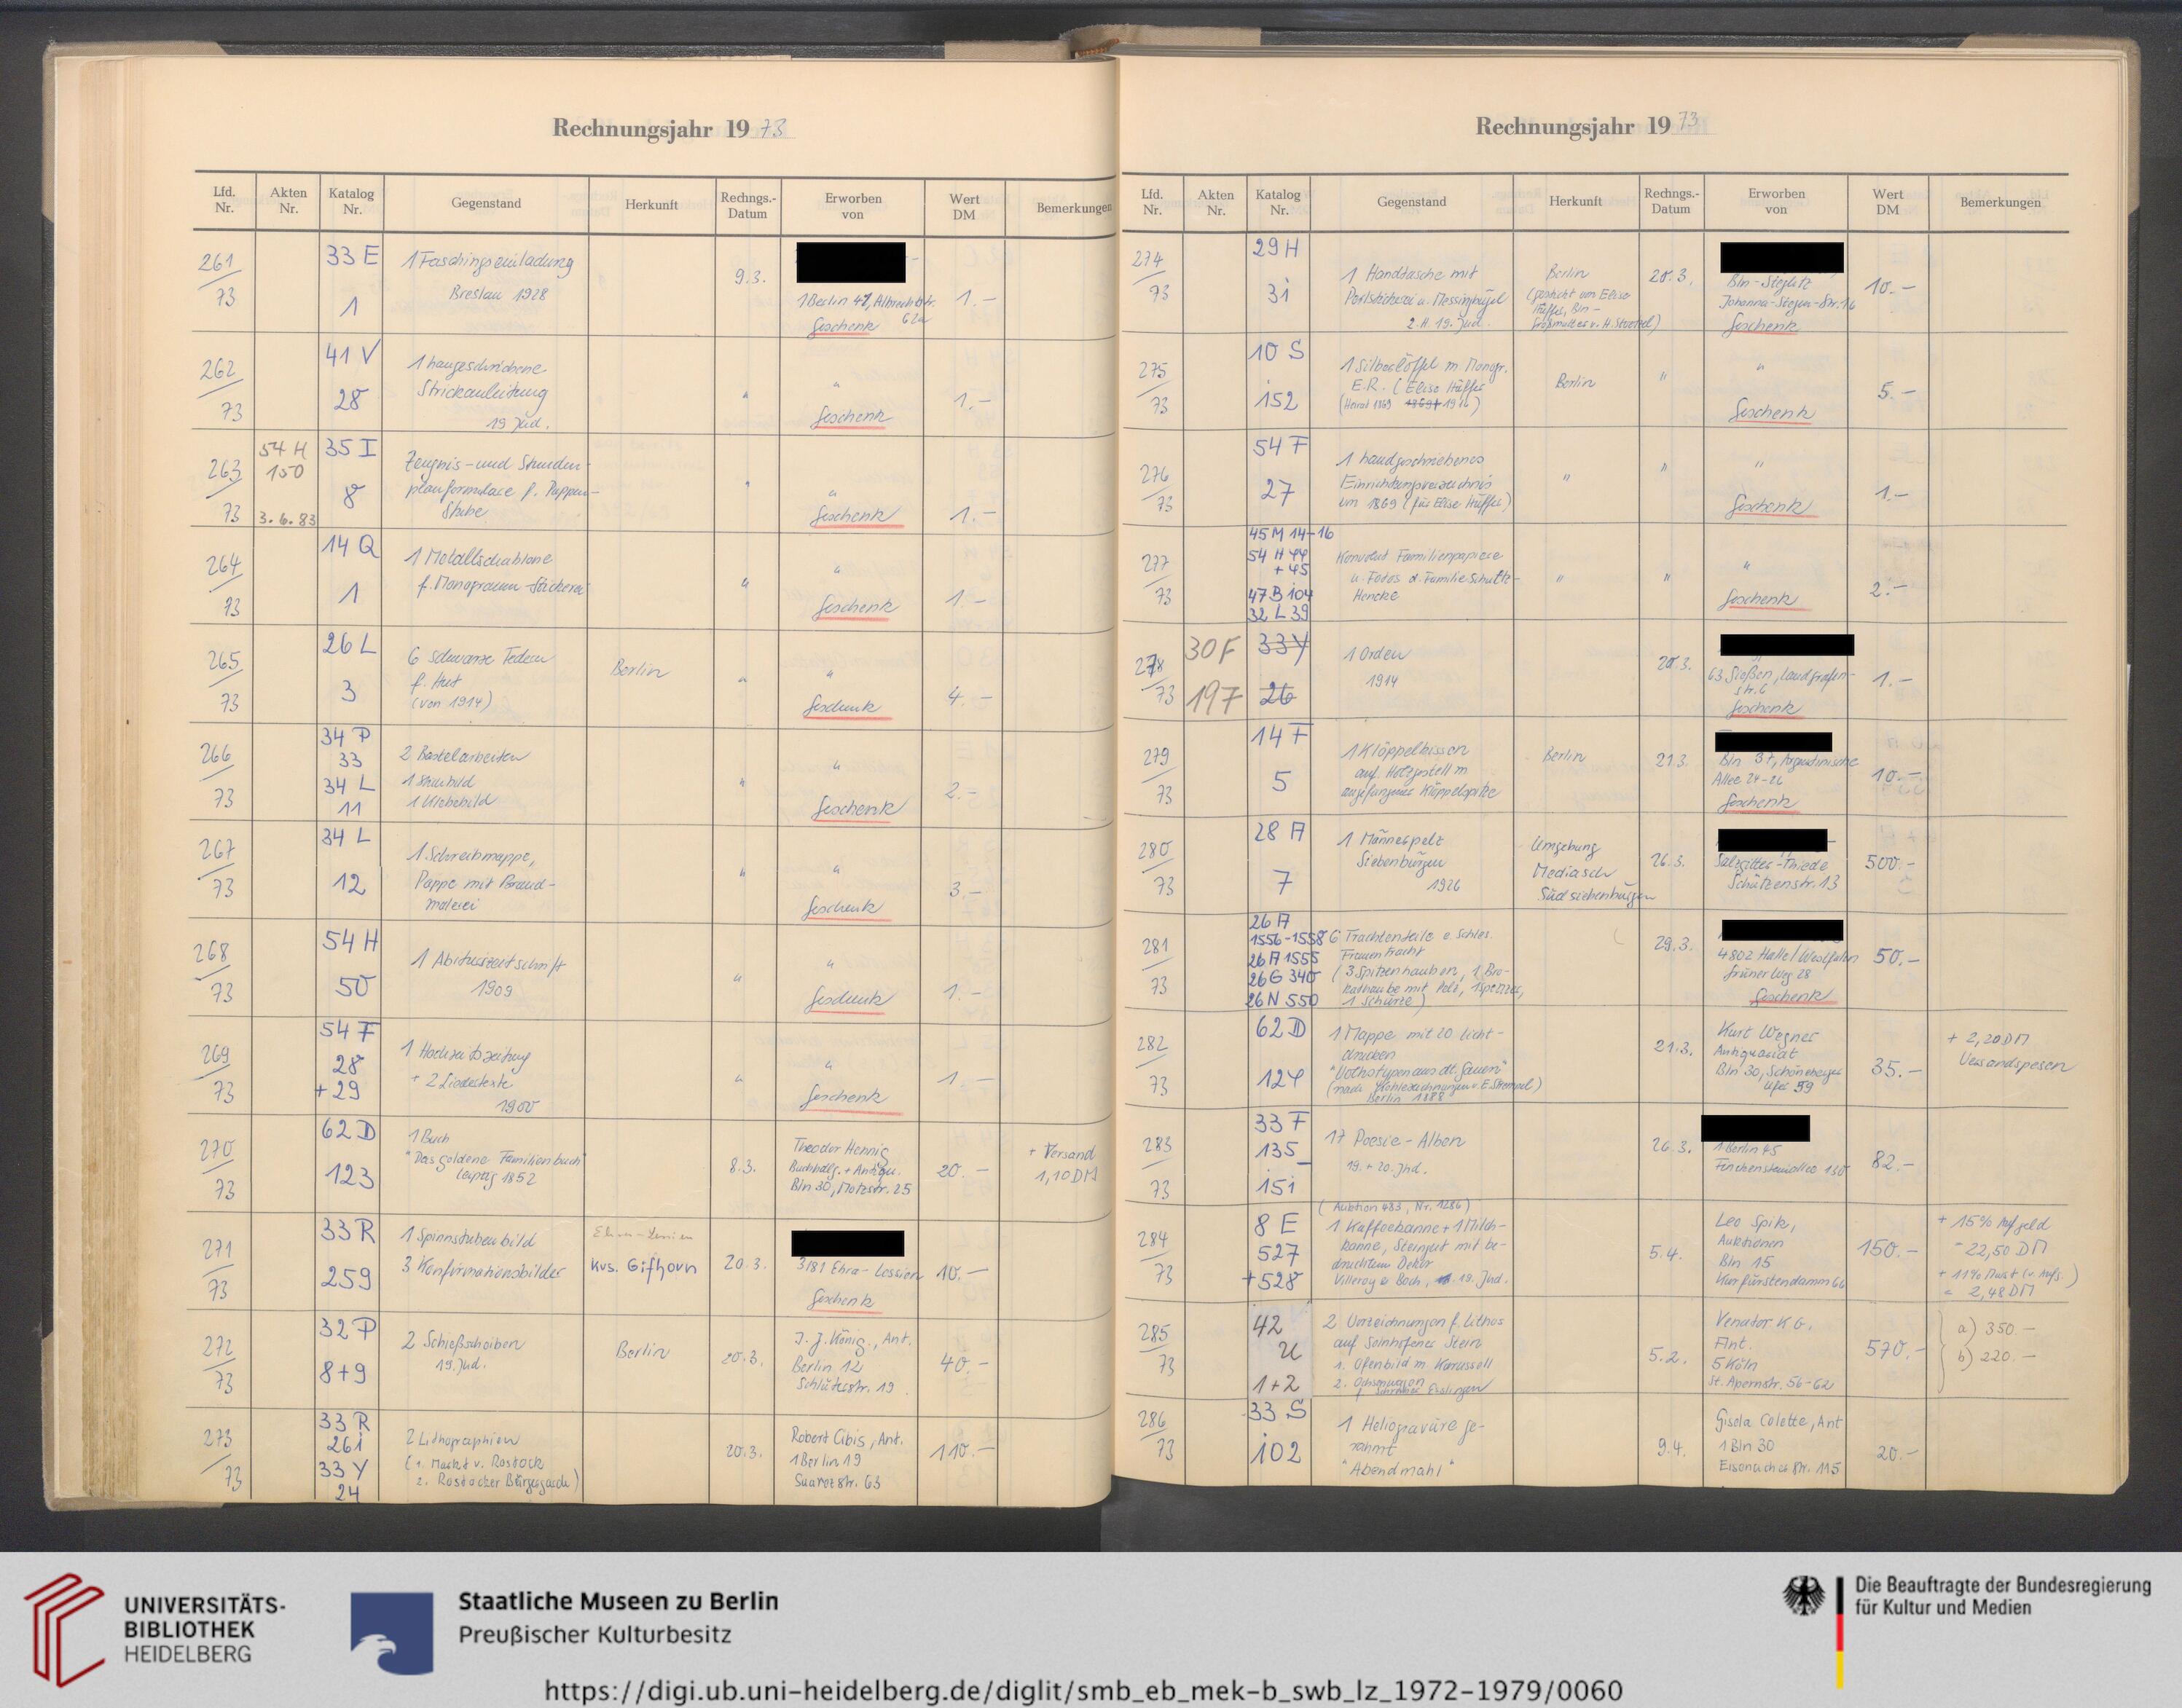 Rechnungsjahr 1973
Lfd. Nr.
Akten Nr.
Katalog Nr.
Gegenstand
Herkunft
Rechngs.-Datum
Erworben von
Wert DM
Bemerkungen
261/73
33 E
1
1 Faschingseinladung
Breslau 1928
9.3.
1 Berlin 41, Albrechtstr.
62a
Geschenk
1.-
262/73
41 V
28
Strickanleitung
19 Jhd.
"
"
Geschenk
1.-
263/73
54 H
150
3.6.83
35 I
8
Zeugnis- und Stunden-
planformulare f. Puppen-
Stube
"
"
Geschenk
1.-
264/73
14 Q
1
1 Metallschablone
f. Monogramm-Stickerei
"
"
Geschenk
1.-
265/73
26 L
3
6 schwarze Federn
f. Hut
(von 1914)
Berlin
"
"
Geschenk
4.-
266/73
34 P
33
34 L
11
2 Bastelarbeiten
1 Klebebild
"
"
Geschenk
2.-
267/73
34 L
12
1 Schreibmappe,
Pappe mit Brand-
malerei
"
"
Geschenk
3.-
268/73
54 H
50
1 Abiturzeitschrift
1909
"
"
Geschenk
1.-
269/73
54 F
28
+ 29
1 Hochzeitszeitung
+ 2 Liedertexte
1900
"
"
Geschenk
1.-
270/73
62 D
123
1 Buch
"Das goldene Familienbuch"
Leipzig 1852
8.3.
Theodor Hennig
Buchhdlg. + Antiqu.
Bln 30, Motzstr. 25
20.-
+ Versand
1,10 DM
271/73
33 R
259
1 Spinnstubenbild
3 Konfirmationsbilder
Ehra-Lessien
Krs. Gifhorn
20.3.
3181 Ehra-Lessien
Geschenk
10.-
272/73
32 P
8+9
2 Schießscheiben
19. Jhd.
Berlin
20.3.
J. J. König, Ant.
Berlin 12
Schlüterstr. 19
40.-
273/73
33 R
261
33 Y
24
2 Lithographien
(1. Markt v. Rostock
2. Rostocker Bürgergarde)
20.3.
Robert Cibis, Ant.
1 Berlin 19
Suarezstr. 63
110.-
Rechnungsjahr 1973
Lfd. Nr.
Akten Nr.
Katalog Nr.
Gegenstand
Herkunft
Rechngs.-Datum
Erworben von
Wert DM
Bemerkungen
274/73
29 H
31
1 Handtasche mit
Perlstickerei u. Messingbügel
2. H. 19. Jhd.
Berlin
(gestickt von Elise
Hüffer, Bln-
Großmutter v. H. )
20.3.
Bln-Steglitz
Johanna-Stegen-Str. 16
Geschenk
10.-
275/73
10 S
152
1 Silberlöffel m Monogr.
E.R. (Elise Hüffer
(Heirat 1869 1916)
Berlin
"
"
Geschenk
5.-
276/73
54 F
27
1 handgeschriebenes
Einrichtungsverzeichnis
um 1869 (für Elise Hüffer)
"
"
"
Geschenk
1.-
277/73
45 M 14-16
54 H 44
+ 45
47 B 104
32 L 39
Konvolut Familienpapiere
u. Fotos d. Familie Schultz-
Hencke
"
"
"
Geschenk
2.-
278/73
30 F
197
33 Y
26
1 Orden
1914
20.3.
63 Gießen, Landgrafen-
str. 6
Geschenk
1.-
279/73
14 F
5
1 Klöppelkissen
auf Holzgestell m
angefangener Klöppelspitze
Berlin
21.3.
Bln 37, Argentinische
Allee 24-26
Geschenk
10.-
280/73
28 A
7
1 Männerpelz
Siebenbürgen
1926
Umgebung
Mediasch
Südsiebenbürgen
26.3.
Salzgitter-Thiede
Schützenstr. 13
500.-
281/73
26 A
1556-1558
26 A 1555
26 G 340
26 N 550
6 Trachtenteile e. Schles.
Frauentracht
(3 Spitzenhauben, 1 Bro-
kathaube mit Pelz, 1 Spenzer,
1 Schürze)
29.3.
4802 Halle/Westfalen
Grüner Weg 28
Geschenk
50.-
282/73
62 D
124
1 Mappe mit 20 Licht-
drucken
"Volkstypen aus dt. Gauen"
(nach Kohlezeichnungen v. E. )
Berlin 1888
21.3.
Kurt Wegner
Antiquariat
Bln 30, Schöneberger
Ufer 59
35.-
+ 2,20 DM
Versandspesen
283/73
33 F
135-
151
17 Poesie-Alben
19. + 20. Jhd.
26.3.
1 Berlin 45
82.-
284/73
8 E
527
+ 528
(Auktion 483, Nr. 1286)
1 Kaffeekanne + 1 Milch-
kanne, Steingut mit be-
drucktem Dekor
Villeroy & Boch, 19. Jhd.
5.4.
Leo Spik,
Auktionen
Bln 15
Kurfürstendamm 66
150.-
+ 15% Aufgeld
= 22,50 DM
+ 11% Mwst (v. Aufg.)
= 2,48 DM
285/73
42
U
1+2
2 Vorzeichnungen f. Lithos
auf Solnhofener Stein
1. Ofenbild m. Karussell
2. Ochsenwagon
f. Schreiber Esslingen
5.2.
Venator KG.
Ant.
5 Köln
St. Apernstr. 56-62
570.-
a) 350.-
b) 220.-
286/73
33 S
102
1 Heliogravüre ge-
rahmt
"Abendmahl"
9.4.
Gisela Colette, Ant
1 Bln 30
Eisenacher Str. 115
20.-
UNIVERSITÄTS-
BIBLIOTHEK
HEIDELBERG
Staatliche Museen zu Berlin
Preußischer Kulturbesitz
Die Beauftragte der Bundesregierung
für Kultur und Medien
https://digi.ub.uni-heidelberg.de/diglit/smb_eb_mek-b_swb_lz_1972-1979/0060